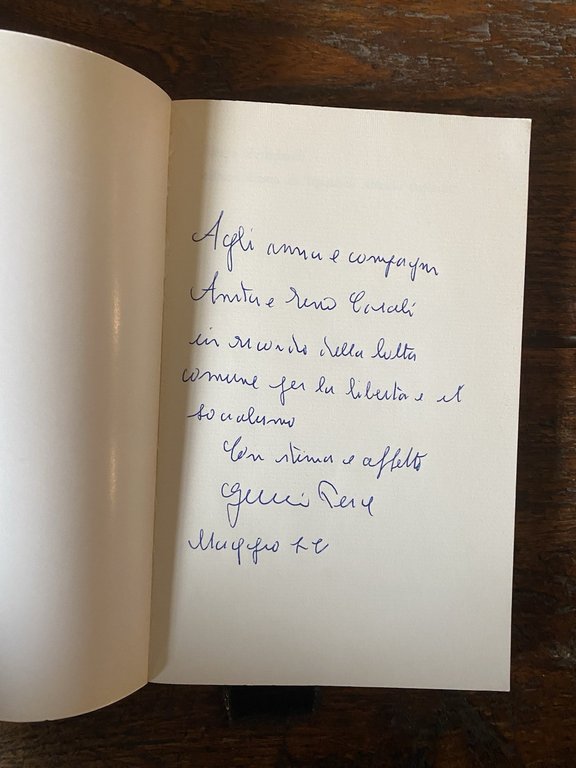 Agli amici e compagni
Anita e Reno Casali
in ricordo della lotta
comune per la libertà e il
socialismo
Con stima e affetto
Maggio